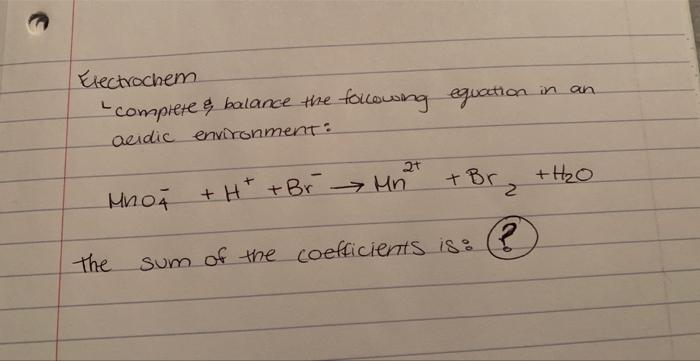 Electrochem
↳ complete & balance the following equation in an
acidic environment:
MnO₄⁻ + H⁺ + Br⁻ → Mn²⁺ + Br₂ + H₂O
the sum of the coefficients is: ?